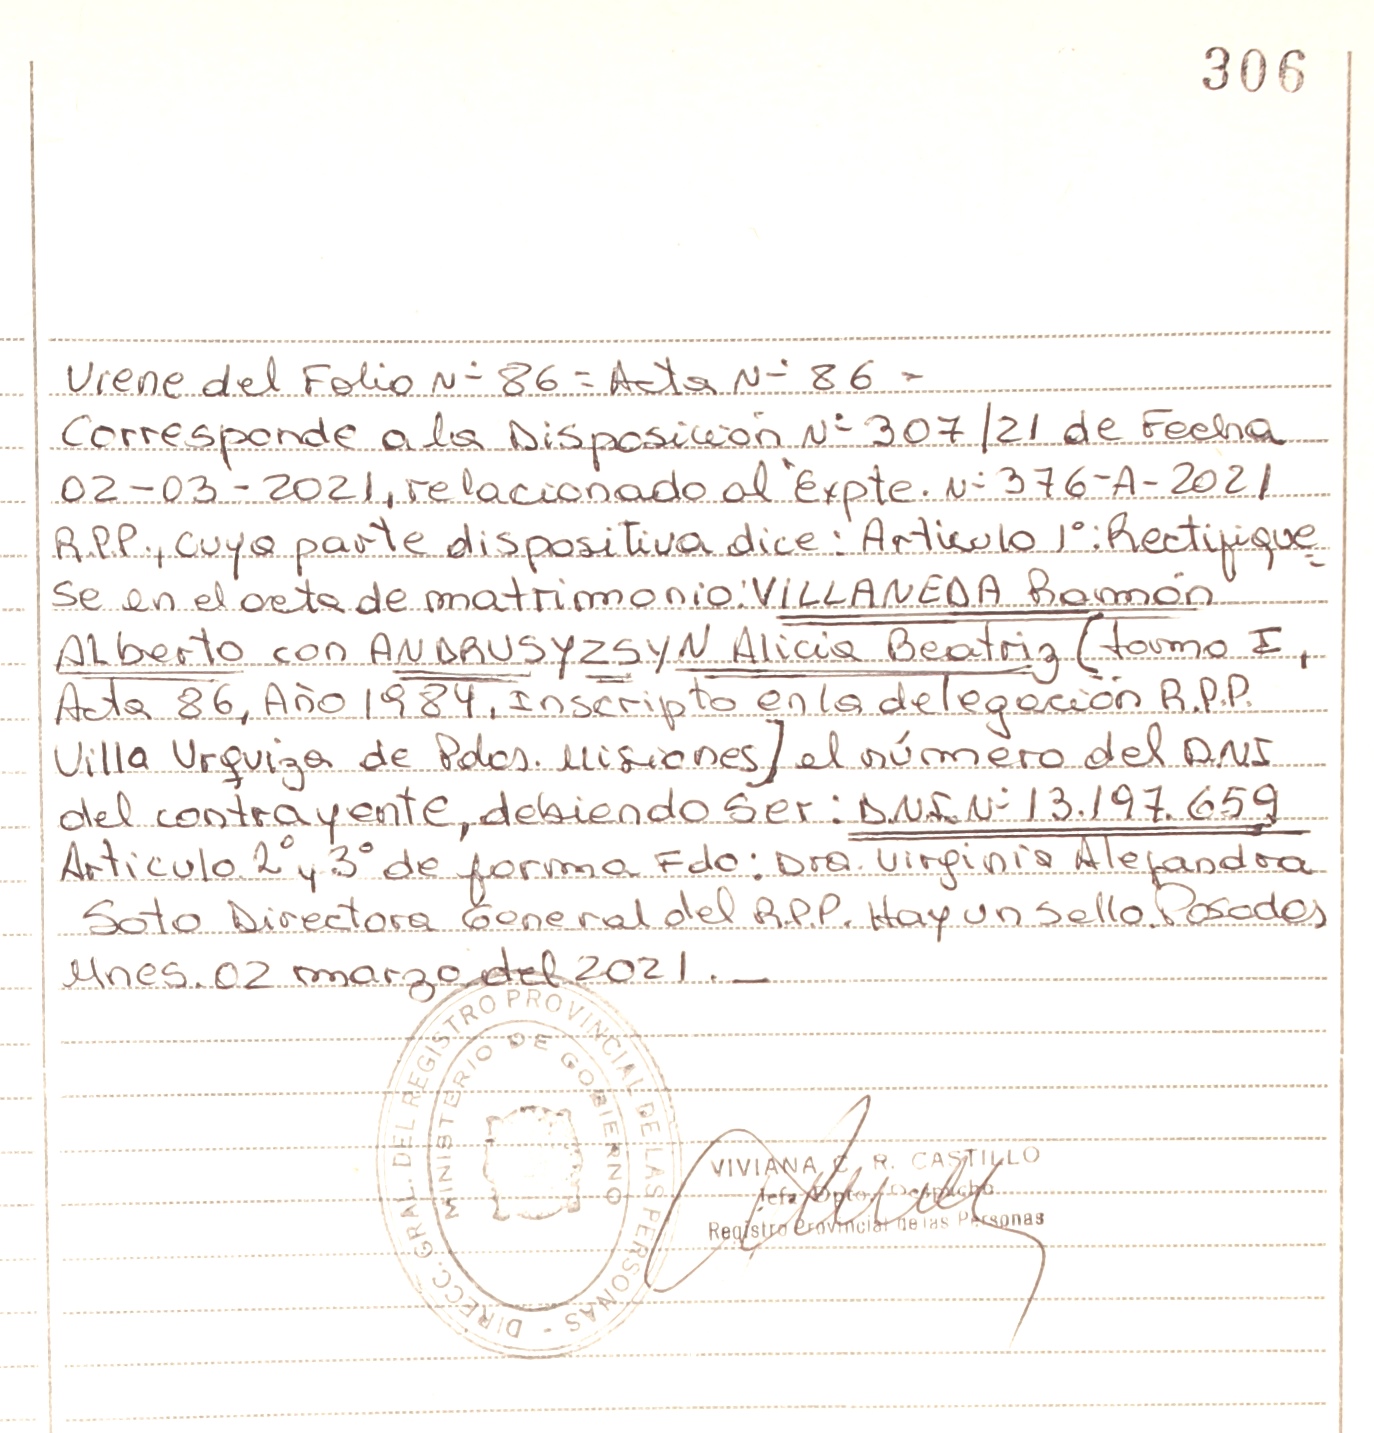 306
Viene del Folio Nº 86 = Acta Nº 86 -
Corresponde a la Disposición Nº 307/21 de Fecha
02-03-2021, relacionado al Expte. Nº 376-A-2021
R.P.P., cuya parte dispositiva dice: Articulo 1º: Rectifique=
se en el acta de matrimonio: VILLANEDA Ramón
ALberto con ANDRUSYZSYN Alicia Beatriz (tomo I,
Acta 86, Año 1984, Inscripto en la delegación R.P.P.
Villa Urquiza de Pdas. Misiones) el número del D.N.I
del contrayente, debiendo ser: D.N.I. Nº 13.197.659
Articulo 2º y 3º de forma Fdo: Dra. Virginia Alejandra
Soto Directora General del R.P.P. Hay un sello. Posadas
Mnes. 02 marzo del 2021._
DIRECC. GRAL. DEL REGISTRO PROVINCIAL DE LAS PERSONAS -
MINISTERIO DE GOBIERNO
VIVIANA C. R. CASTILLO
Jefa Dpto. Despacho
Registro Provincial de las Personas